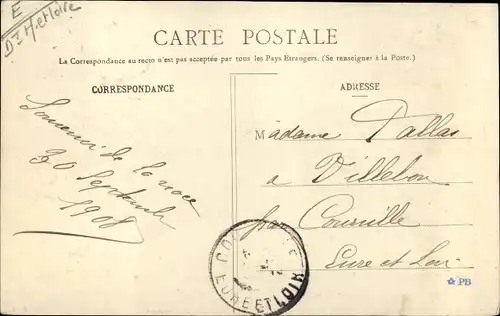 E
Dt M.etLoire
CARTE POSTALE
La Correspondance au recto n'est pas acceptée par tous les Pays Étrangers. (Se renseigner à la Poste.)
CORRESPONDANCE
Souvenir de la noce
30 Septembre
1908
ADRESSE
Madame Dallas
a Villebon
par Courville
Eure et Loir
LA CO
EURE ET LOIR
PB